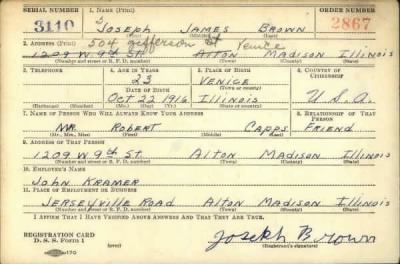 SERIAL NUMBER 1. NAME (Print) ORDER NUMBER
3110 JOSEPH JAMES BROWN 2867
504 Jefferson St Venice
2. ADDRESS (Print)
1209 W 9th ST. ALTON MADISON ILLINOIS
3. TELEPHONE 4. AGE IN YEARS 5. PLACE OF BIRTH 6. COUNTRY OF CITIZENSHIP
23 VENICE
DATE OF BIRTH
OCT 22 1916 ILLINOIS U.S.A.
(Exchange) (Number) (Mo.) (Day) (Yr.) (State or country)
7. NAME OF PERSON WHO WILL ALWAYS KNOW YOUR ADDRESS 8. RELATIONSHIP OF THAT PERSON
MR. ROBERT CAPPS FRIEND
(Mr., Mrs., Miss) (First) (Middle) (Last)
9. ADDRESS OF THAT PERSON
1209 W 9th ST. ALTON MADISON ILLINOIS
(Number and street or R. F. D. number) (Town) (County) (State)
10. EMPLOYER'S NAME
JOHN KRAMER
11. PLACE OF EMPLOYMENT OR BUSINESS
JERSEYVILLE ROAD ALTON MADISON ILLINOIS
(Number and street or R. F. D. number) (Town) (County) (State)
I AFFIRM THAT I HAVE VERIFIED ABOVE ANSWERS AND THAT THEY ARE TRUE.
REGISTRATION CARD
D. S. S. FORM 1 Joseph Brown
(Registrant's signature)